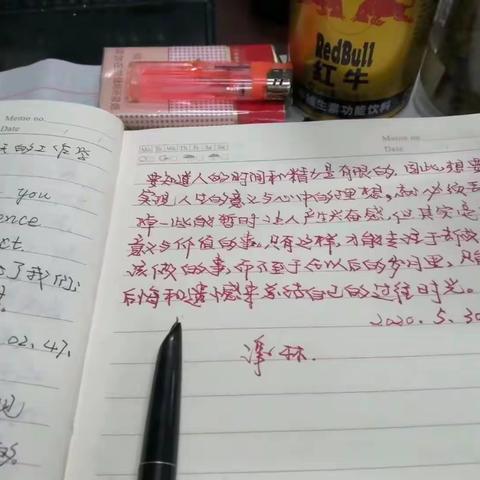 RedBull
红牛
维生素功能饮料
Memo no.
Date
天的工作签
you
ence
ct
了我们
02.47
Memo No.
Date
Mo Tu We Th Fr Sa Su
要知道人的时间和精力是有限的,因此,想要
实现人生的意义与心中的理想,就必须丢
掉一些的暂时让人产生兴奋感,但其实毫无
意义与价值的事。只有这样,才能专注于
该做的事,而不至于在以后的岁月里,只
后悔和遗憾来总结自己的过往时光。
2020.5.30